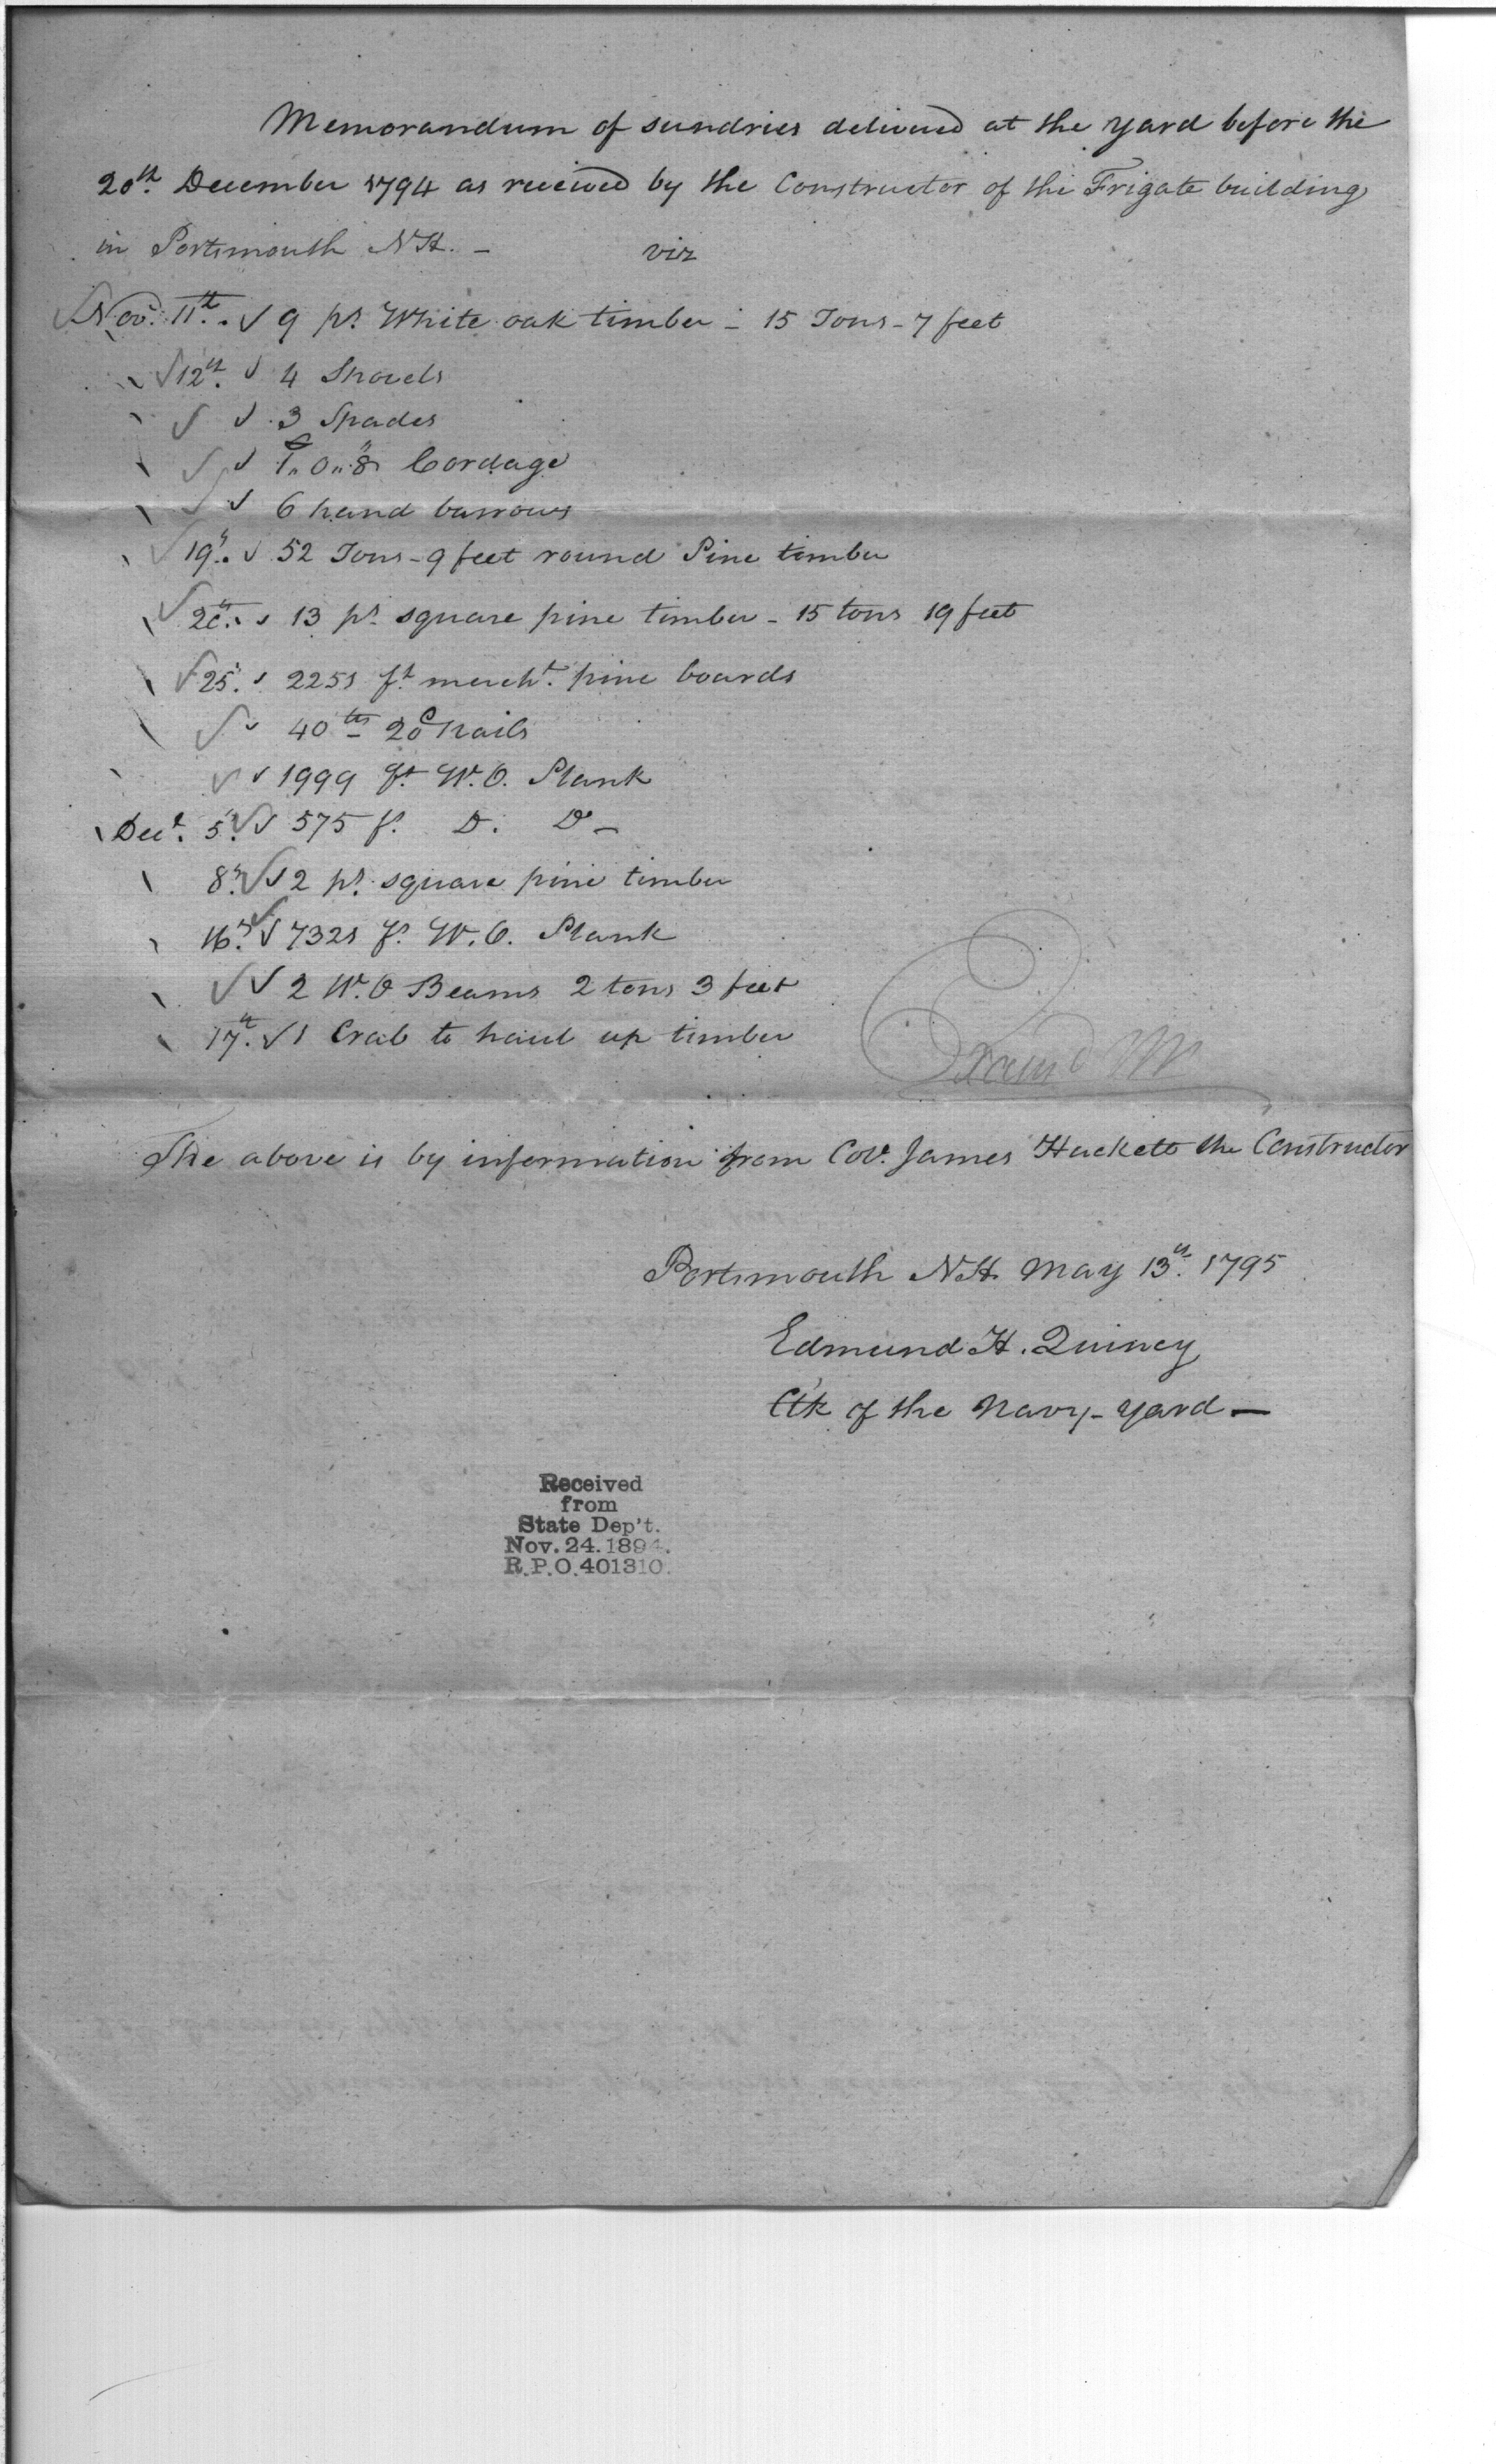 Memorandum of sundries delivered at the Yard before the
20th. December 1794 as received by the Constructor of the Frigate building
in Portsmouth NH. - viz
Nov. 11th. 9 ps. White oak timber - 15 Tons - 7 feet
12th. 4 Shovels
3 Spades
1"0"8 Cordage
6 hand barrows
19". 52 Tons - 9 feet round Pine timber
20th. 13 ps. square pine timber - 15 tons 19 feet
25". 2251 ft. mercht. pine boards
40 lbs 20d nails
1999 ft. W. O. Plank
Decr. 5". 575 ft. Do. Do -
8". 2 ps. square pine timber
16". 7321 ft. W. O. Plank
2 W. O Beams 2 tons 3 feet
17th. 1 Crab to haul up timber
Examd
The above is by information from Col. James Hackett the Constructor
Portsmouth NH May 13th. 1795
Edmund H. Quincy
Clk of the Navy-Yard -
Received
from
State Dep't.
Nov. 24. 1894.
R.P.O. 401310.